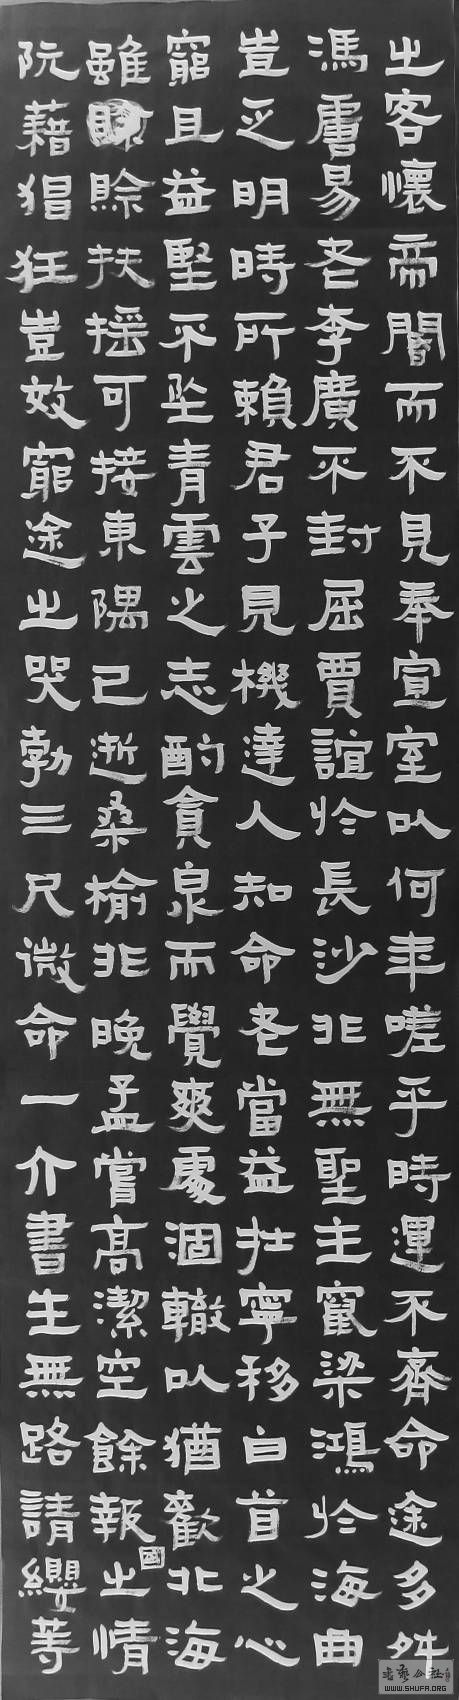 之客懷帝閽而不見奉宣室以何年嗟乎時運不齊命途多舛
馮唐易老李廣不封屈賈誼於長沙非無聖主竄梁鴻於海曲
豈乏明時所賴君子見機達人知命老當益壯寧移白首之心
窮且益堅不墜青雲之志酌貪泉而覺爽處涸轍以猶歡北海
雖賒扶搖可接東隅已逝桑榆非晚孟嘗高潔空餘報國之情
阮藉猖狂豈效窮途之哭勃三尺微命一介書生無路請纓等
WWW.SHUFA.ORG